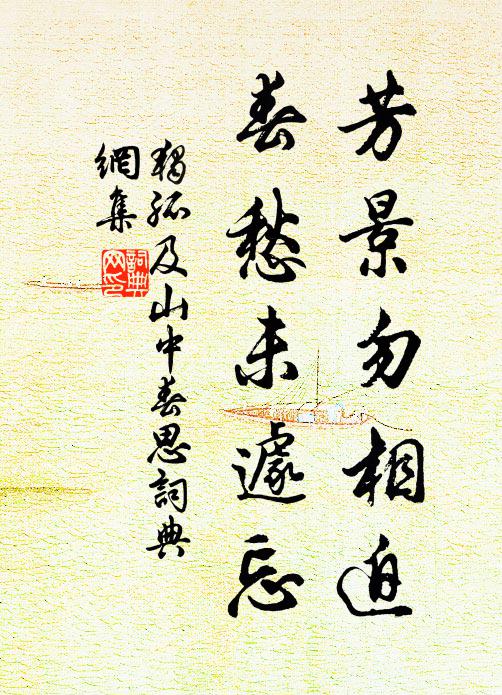 芳景勿相迫
春愁未遽忘
獨孤及山中春思詞典
網集
詞典
网印